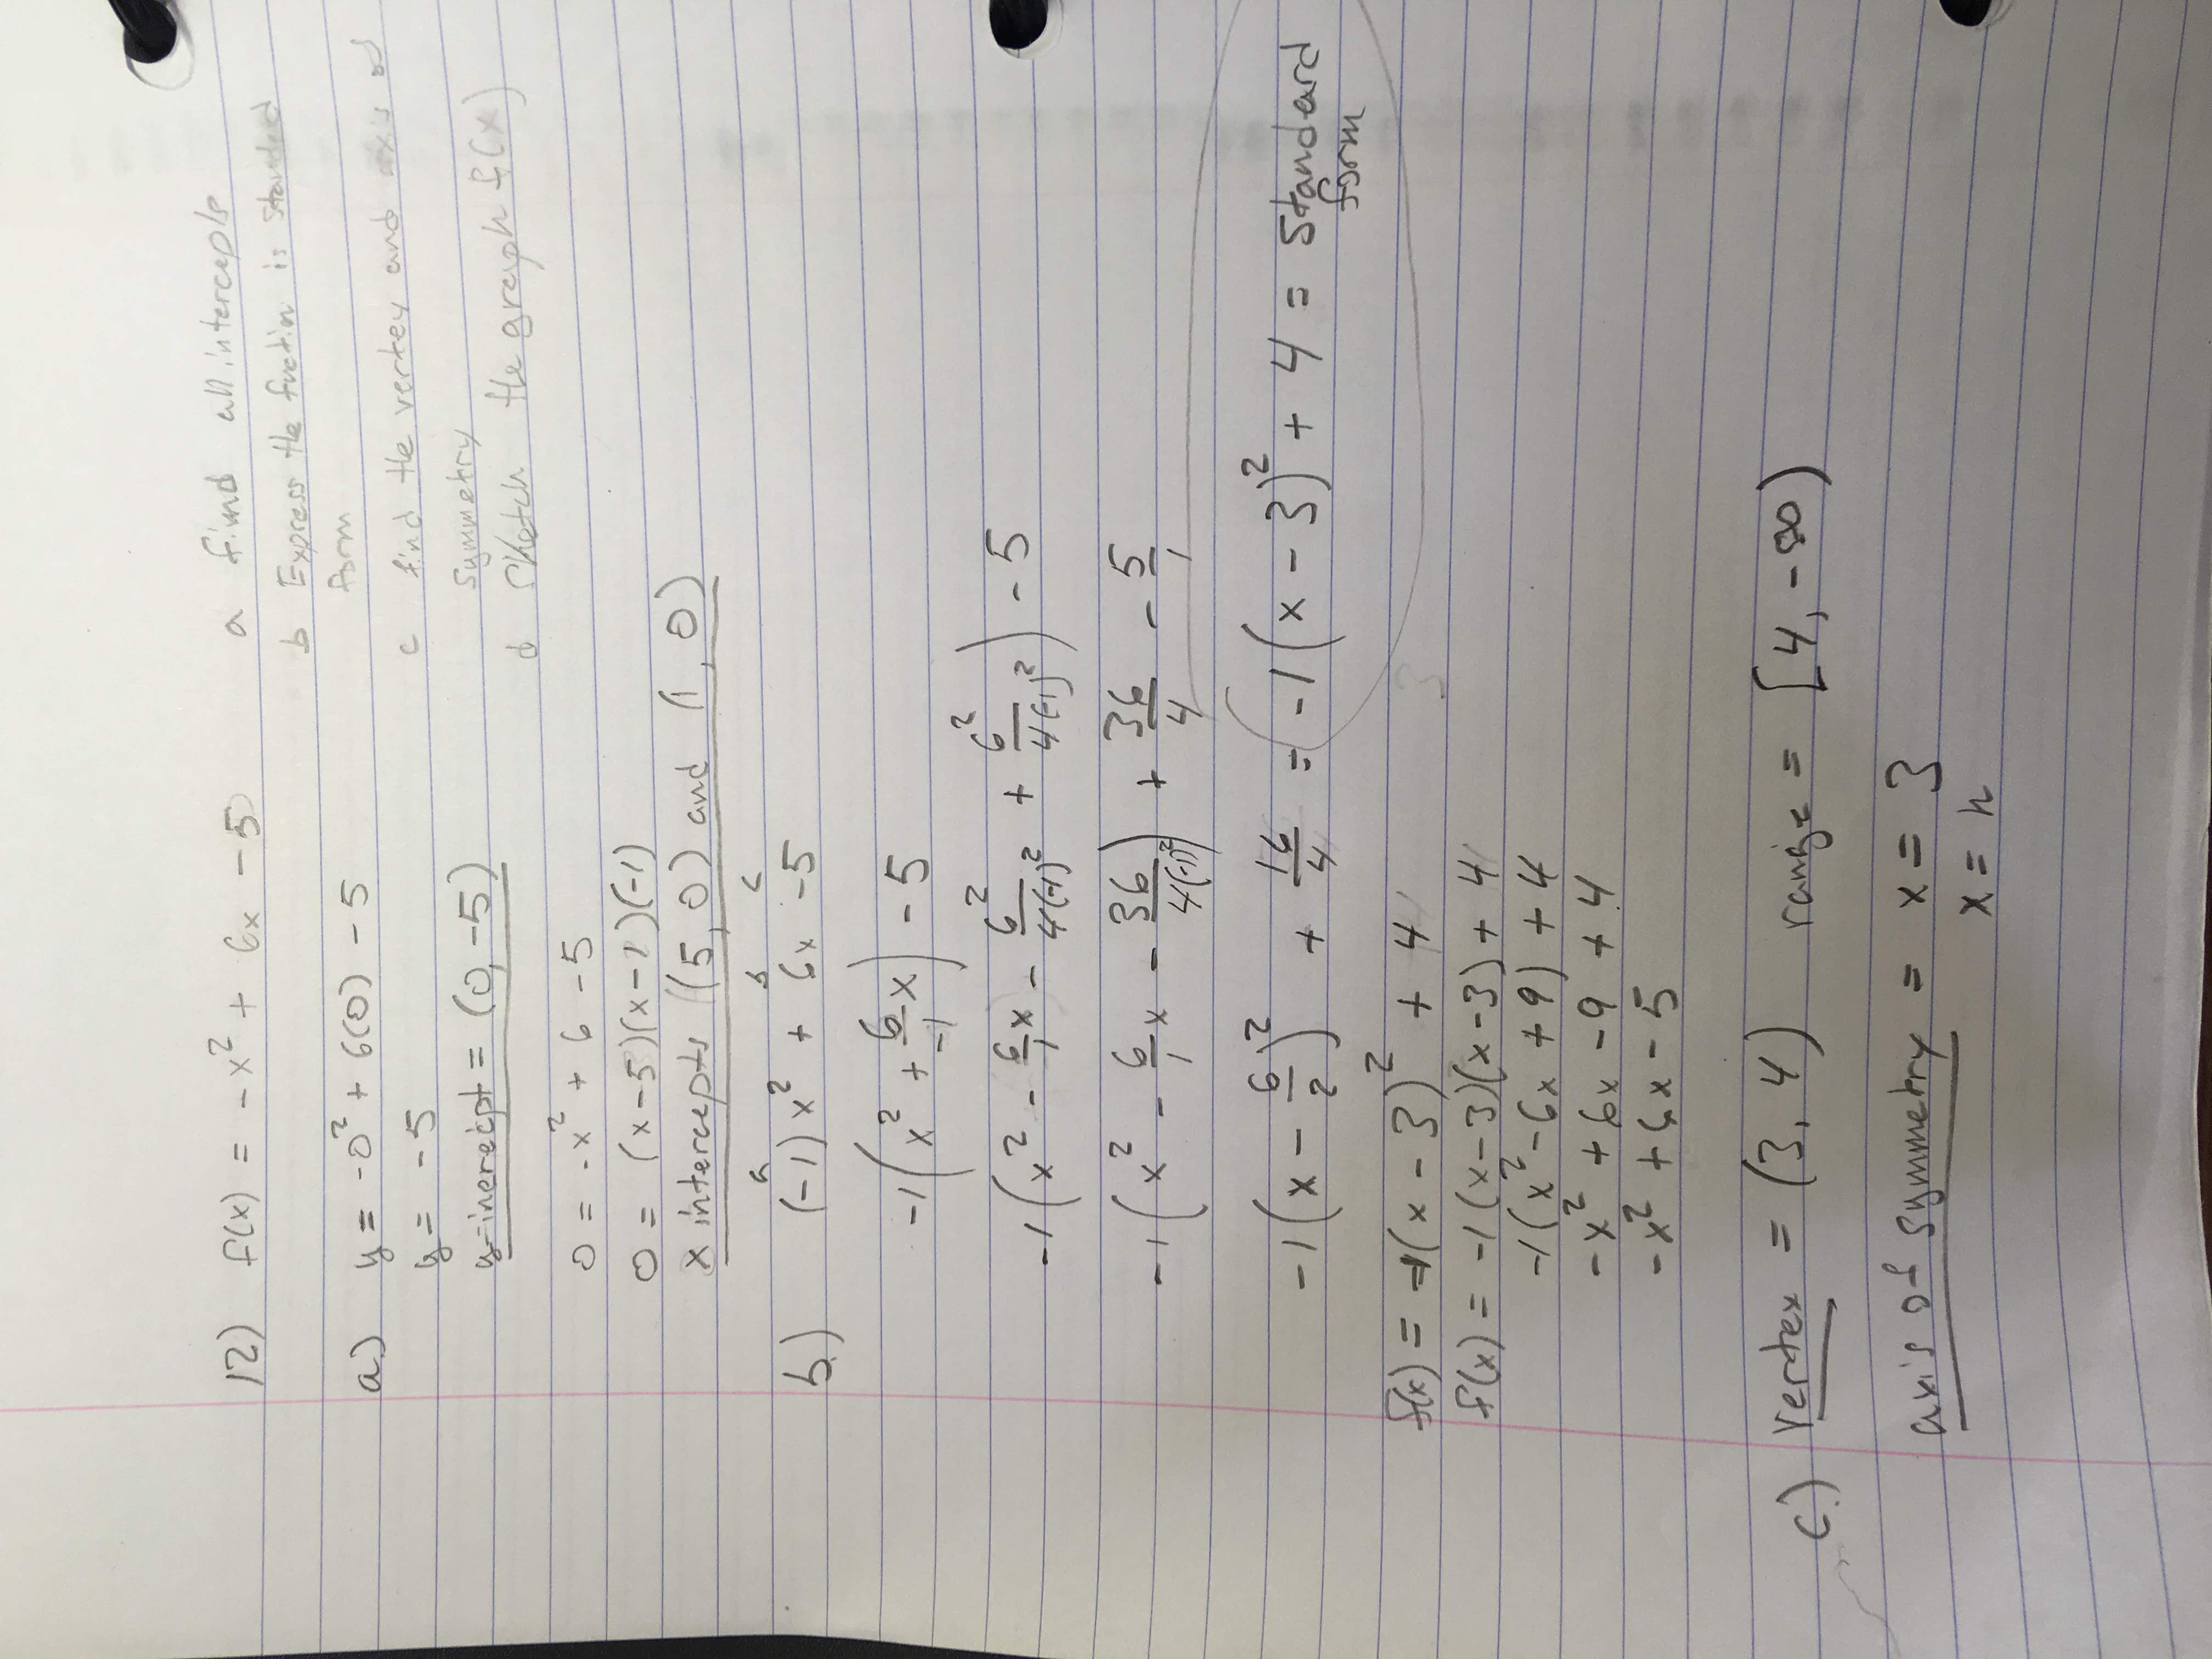 12) f(x) = -x² + 6x - 5
a find all intercepts
b Express the fuction is standed
form
c find the vertex and axis of
symmetry
d sketch the graph f(x)
a.) y = -0² + 6(0) - 5
y = -5
y-inerecipt = (0, -5)
0 = -x² + 6 - 5
0 = (x-5)(x-1)(-1)
x intercepts (5, 0) and (1, 0)
a b c
b.) (-1)x² + 6x - 5
-1(x² + 6/-1 x) - 5
-1(x² - 6/1 x - 6²/4(-1)² + 6²/4(-1)²) - 5
-1(x² - 6/1 x - 36/4(-1)²) + 36/4 - 5/1
-1(x - 6/2)² + 16/4 = -1(x - 3)² + 4 = standard
form
f(x) = -1(x - 3)² + 4
f(x) = -1(x-3)(x-3) + 4
-1(x² - 6x + 9) + 4
-x² + 6x - 9 + 4
-x² + 6x - 5
c.) Vertex = (3, 4) range = [4, -∞)
axis of symmetry = x = 3
x = h